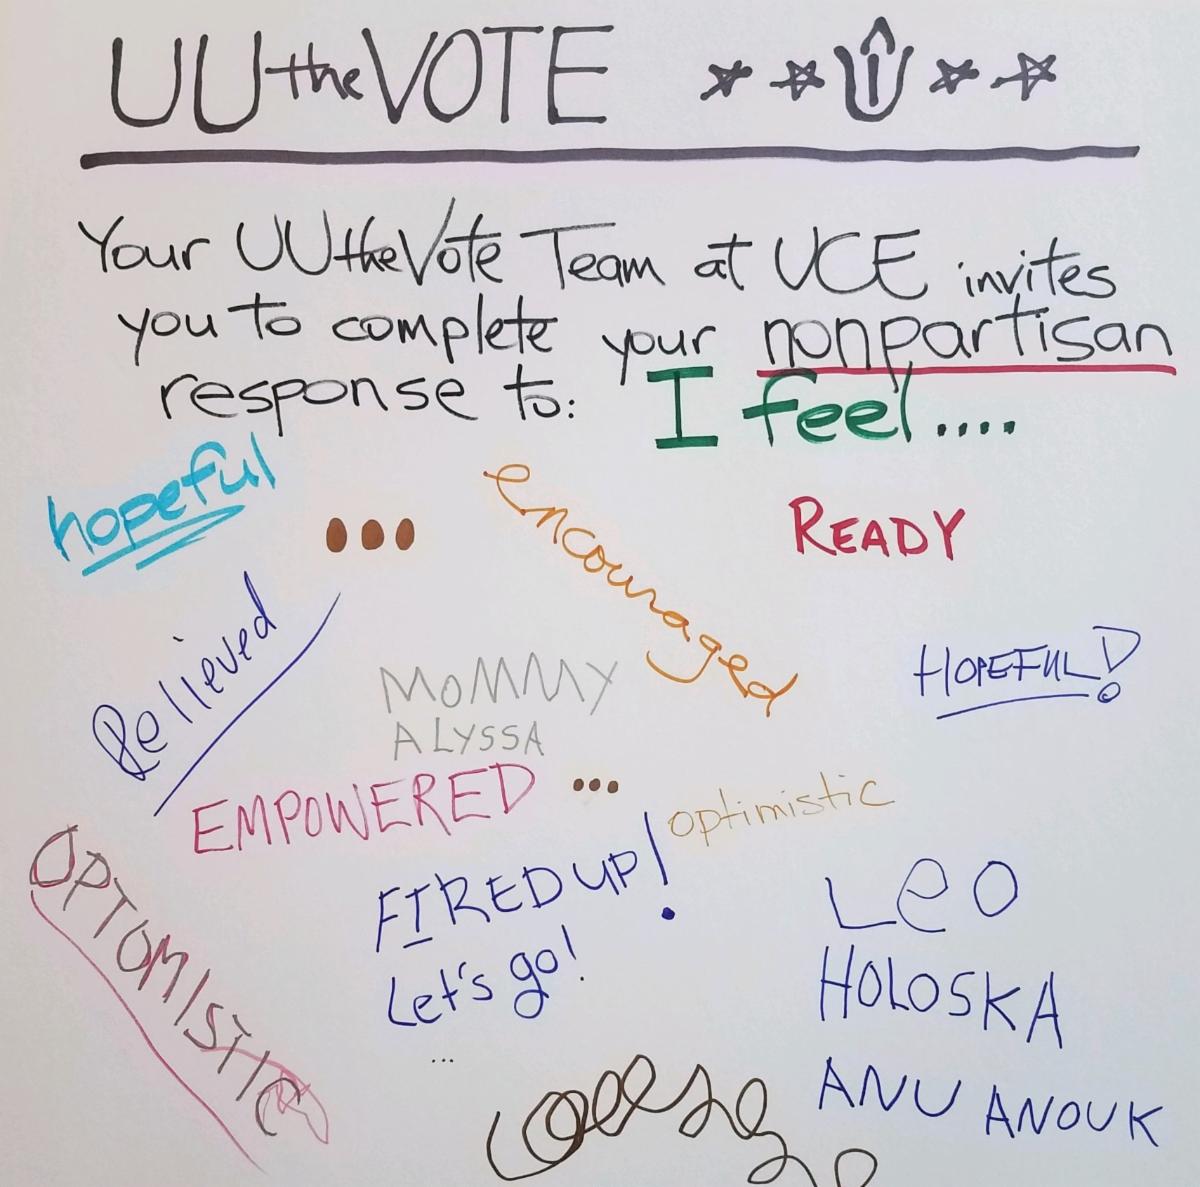 UU the VOTE
Your UU the Vote Team at UCE invites
you to complete your nonpartisan
response to: I feel....
hopeful
...
encouraged
READY
Relieved
HOPEFUL!
MOMMY
ALYSSA
EMPOWERED ...
optimistic
OPTOMISTIC
FIRED UP!
Let's go!
...
LeO
HOLOSKA
ANU ANOUK